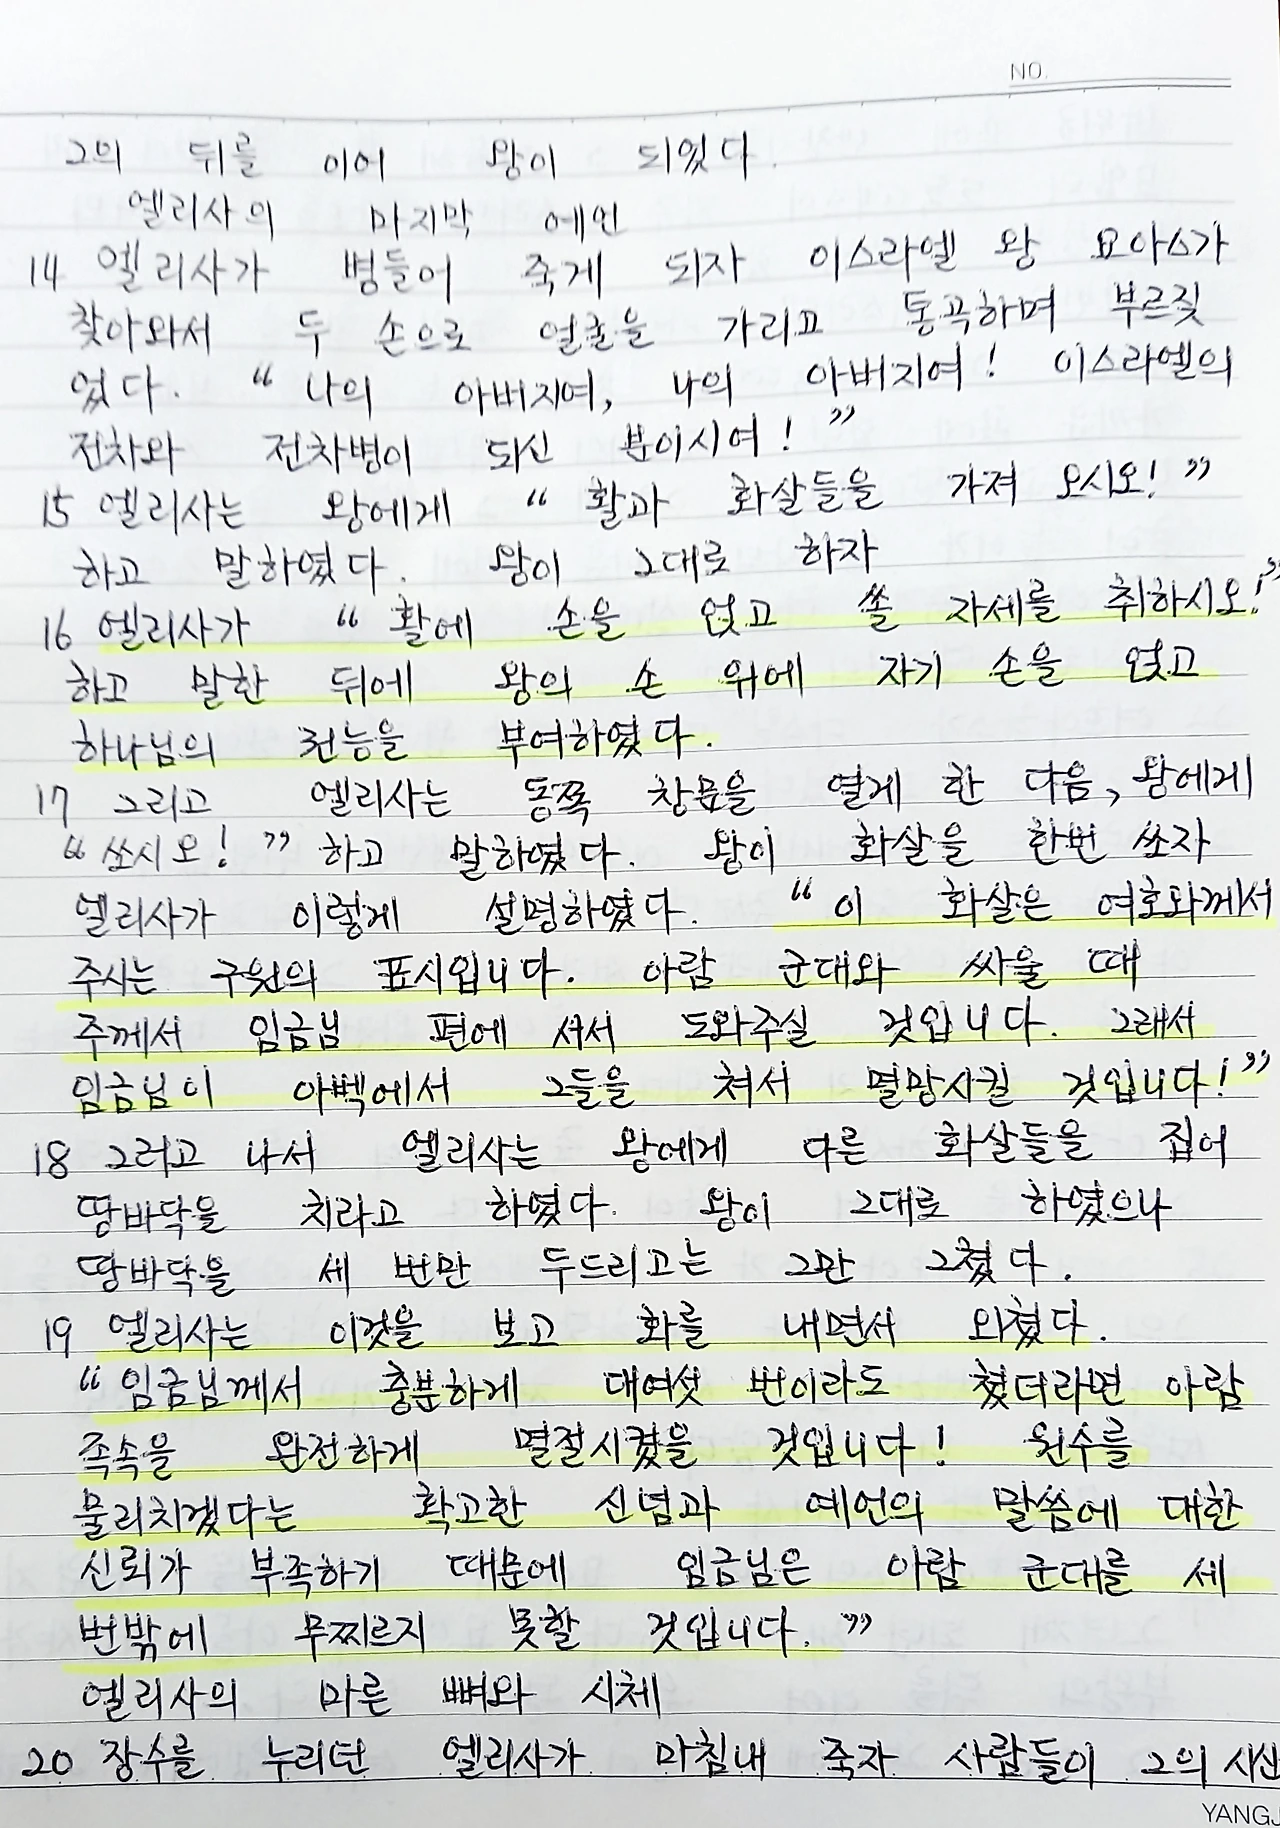 NO.
그의 뒤를 이어 왕이 되었다.
엘리사의 마지막 예언
14 엘리사가 병들어 죽게 되자 이스라엘 왕 요아스가
찾아와서 두 손으로 얼굴을 가리고 통곡하며 부르짖
었다. “나의 아버지여, 나의 아버지여! 이스라엘의
전차와 전차병이 되신 분이시여!”
15 엘리사는 왕에게 “활과 화살들을 가져 오시오!”
하고 말하였다. 왕이 그대로 하자
16 엘리사가 “활에 손을 얹고 쏠 자세를 취하시오!”
하고 말한 뒤에 왕의 손 위에 자기 손을 얹고
하나님의 권능을 부여하였다.
17 그리고 엘리사는 동쪽 창문을 열게 한 다음, 왕에게
“쏘시오!” 하고 말하였다. 왕이 화살을 한번 쏘자
엘리사가 이렇게 설명하였다. “이 화살은 여호와께서
주시는 구원의 표시입니다. 아람 군대와 싸울 때
주께서 임금님 편에 서서 도와주실 것입니다. 그래서
임금님이 아벡에서 그들을 쳐서 멸망시킬 것입니다!”
18 그러고 나서 엘리사는 왕에게 다른 화살들을 집어
땅바닥을 치라고 하였다. 왕이 그대로 하였으나
땅바닥을 세 번만 두드리고는 그만 그쳤다.
19 엘리사는 이것을 보고 화를 내면서 외쳤다.
“임금님께서 충분하게 대여섯 번이라도 쳤더라면 아람
족속을 완전하게 멸절시켰을 것입니다! 원수를
물리치겠다는 확고한 신념과 예언의 말씀에 대한
신뢰가 부족하기 때문에 임금님은 아람 군대를 세
번밖에 무찌르지 못할 것입니다.”
엘리사의 마른 뼈와 시체
20 장수를 누리던 엘리사가 마침내 죽자 사람들이 그의 시신
YANGJ